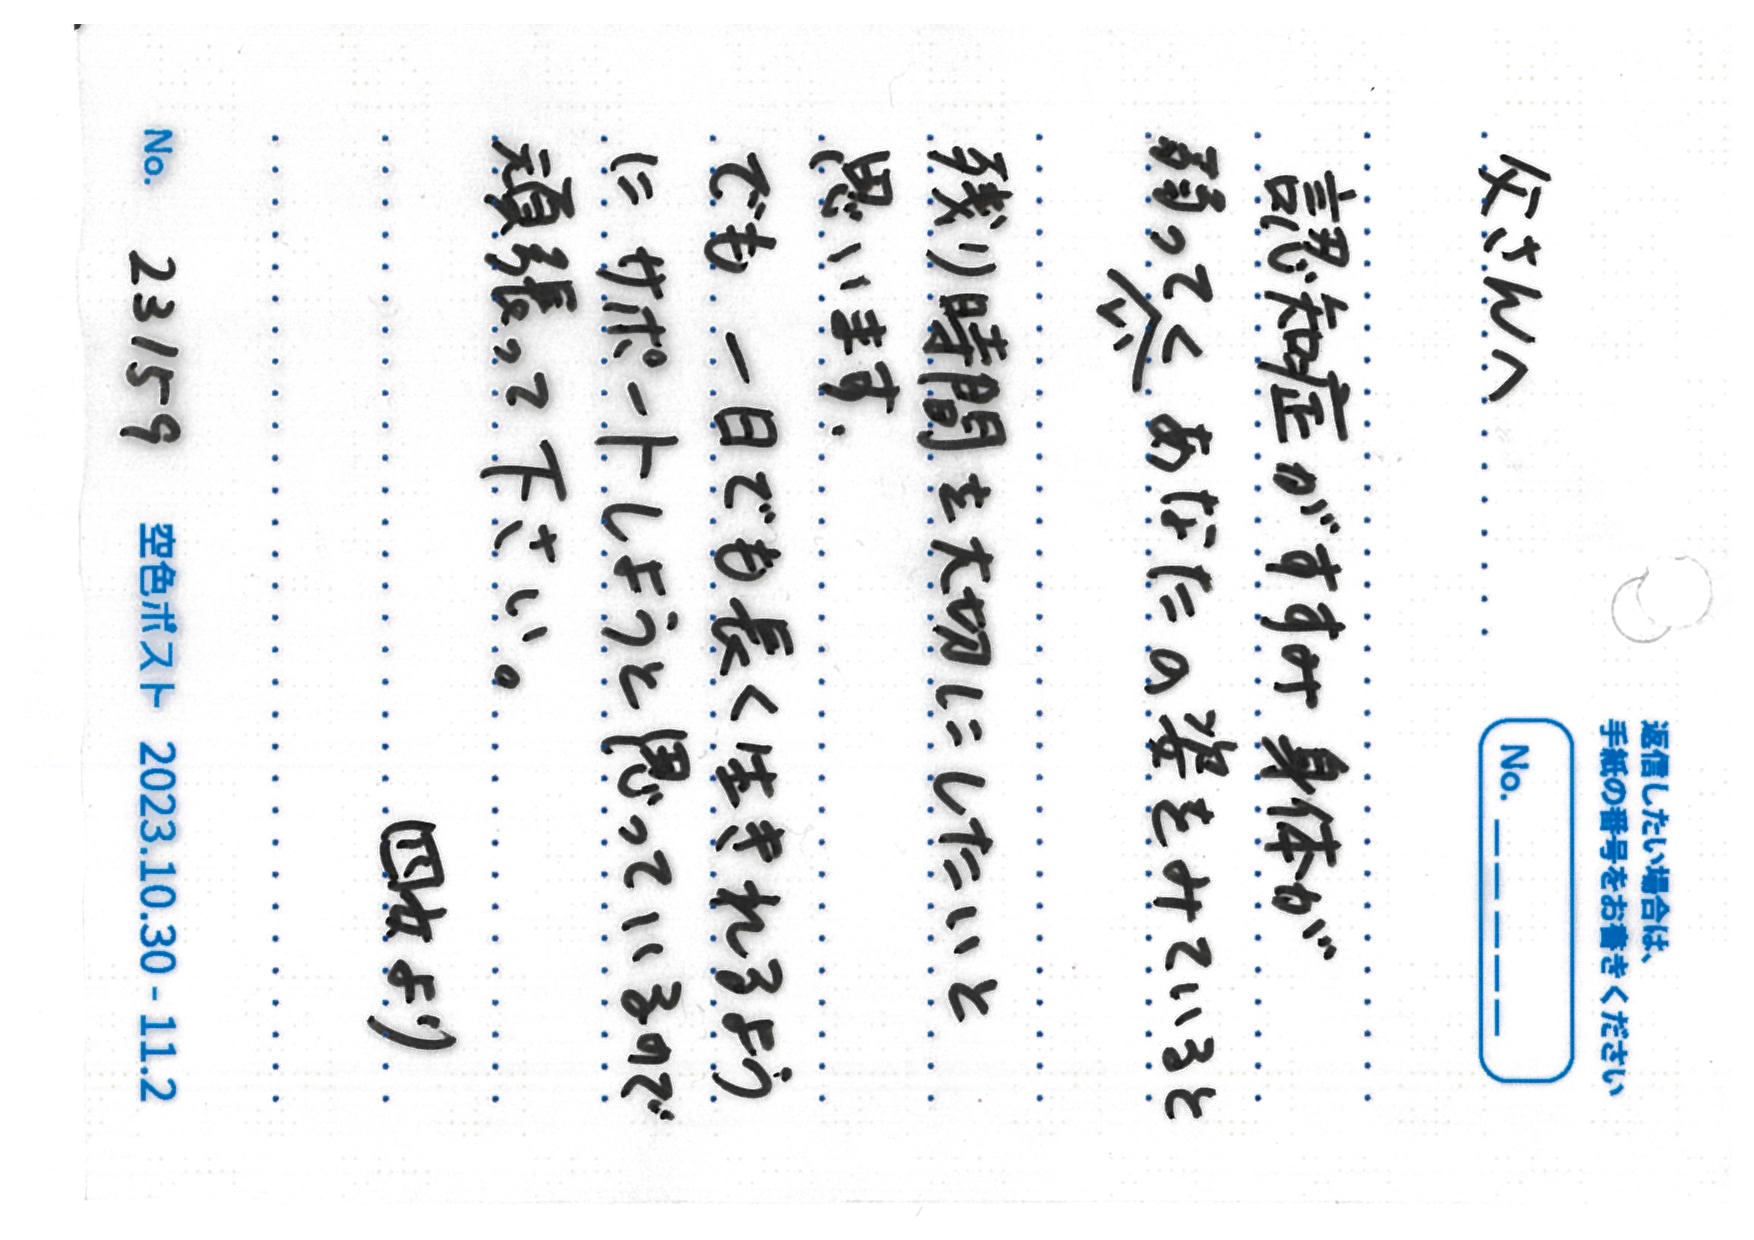 返信したい場合は、
手紙の番号をお書きください
No. _ _ _ _ _
父さんへ
認知症がすすみ 身体が
弱っていく あなたの姿をみていると
残り時間を大切にしたいと
思います.
でも 一日でも長く生きれるよう
に サポートしようと思っているので
頑張って下さい。
四女より
No. 23159 空色ポスト 2023.10.30 - 11.2